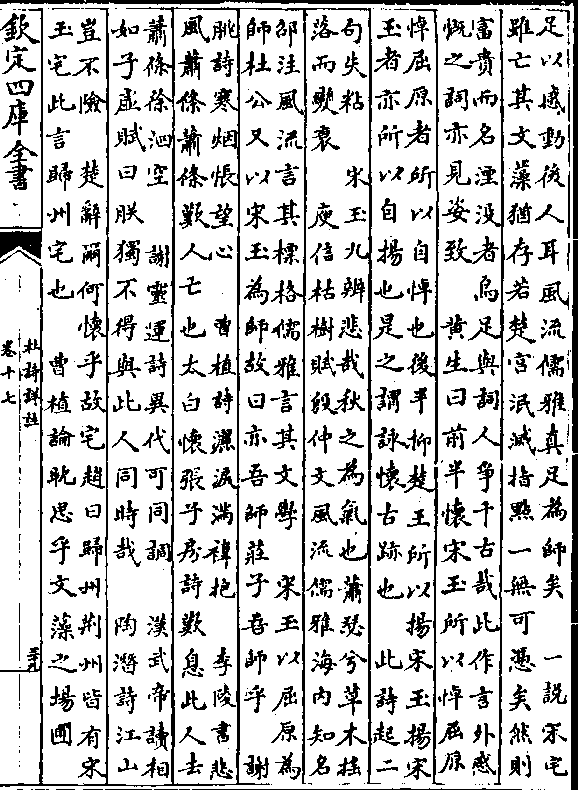 足以感動後人耳風流儒雅真足為師矣　一說宋宅
雖亡其文藻猶存若楚宮泯滅指點一無可憑矣然則
富貴而名湮沒者烏足與詞人爭千古哉此作言外感
慨之詞亦見姿致　黃生曰前半懷宋玉所以悼屈原
悼屈原者所以自悼也後半抑楚王所以揚宋玉揚宋
玉者亦所以自揚也是之謂詠懷古跡也　此詩起二
句失粘　宋玉九辨悲哉秋之為氣也蕭瑟兮草木搖
落而變衰　庾信枯樹賦殷仲文風流儒雅海内知名
邵注風流言其標格儒雅言其文學　宋玉以屈原為
師杜公又以宋玉為師故曰亦吾師莊子吾師乎　謝
朓詩寒烟悵望心　曹植詩灑淚滿褘抱　李陵書悲
風蕭條蕭條歎人亡也太白懷張子房詩歎息此人去
蕭條徐泗空　謝靈運詩異代可同調　漢武帝讀相
如子虛賦曰朕獨不得與此人同時哉　陶潛詩江山
豈不險　楚辭爾何懷乎故宅趙曰歸州荆州皆有宋
玉宅此言歸州宅也　曹植論耽思乎文藻之場圃
欽定四庫全書
杜詩詳註
卷十七